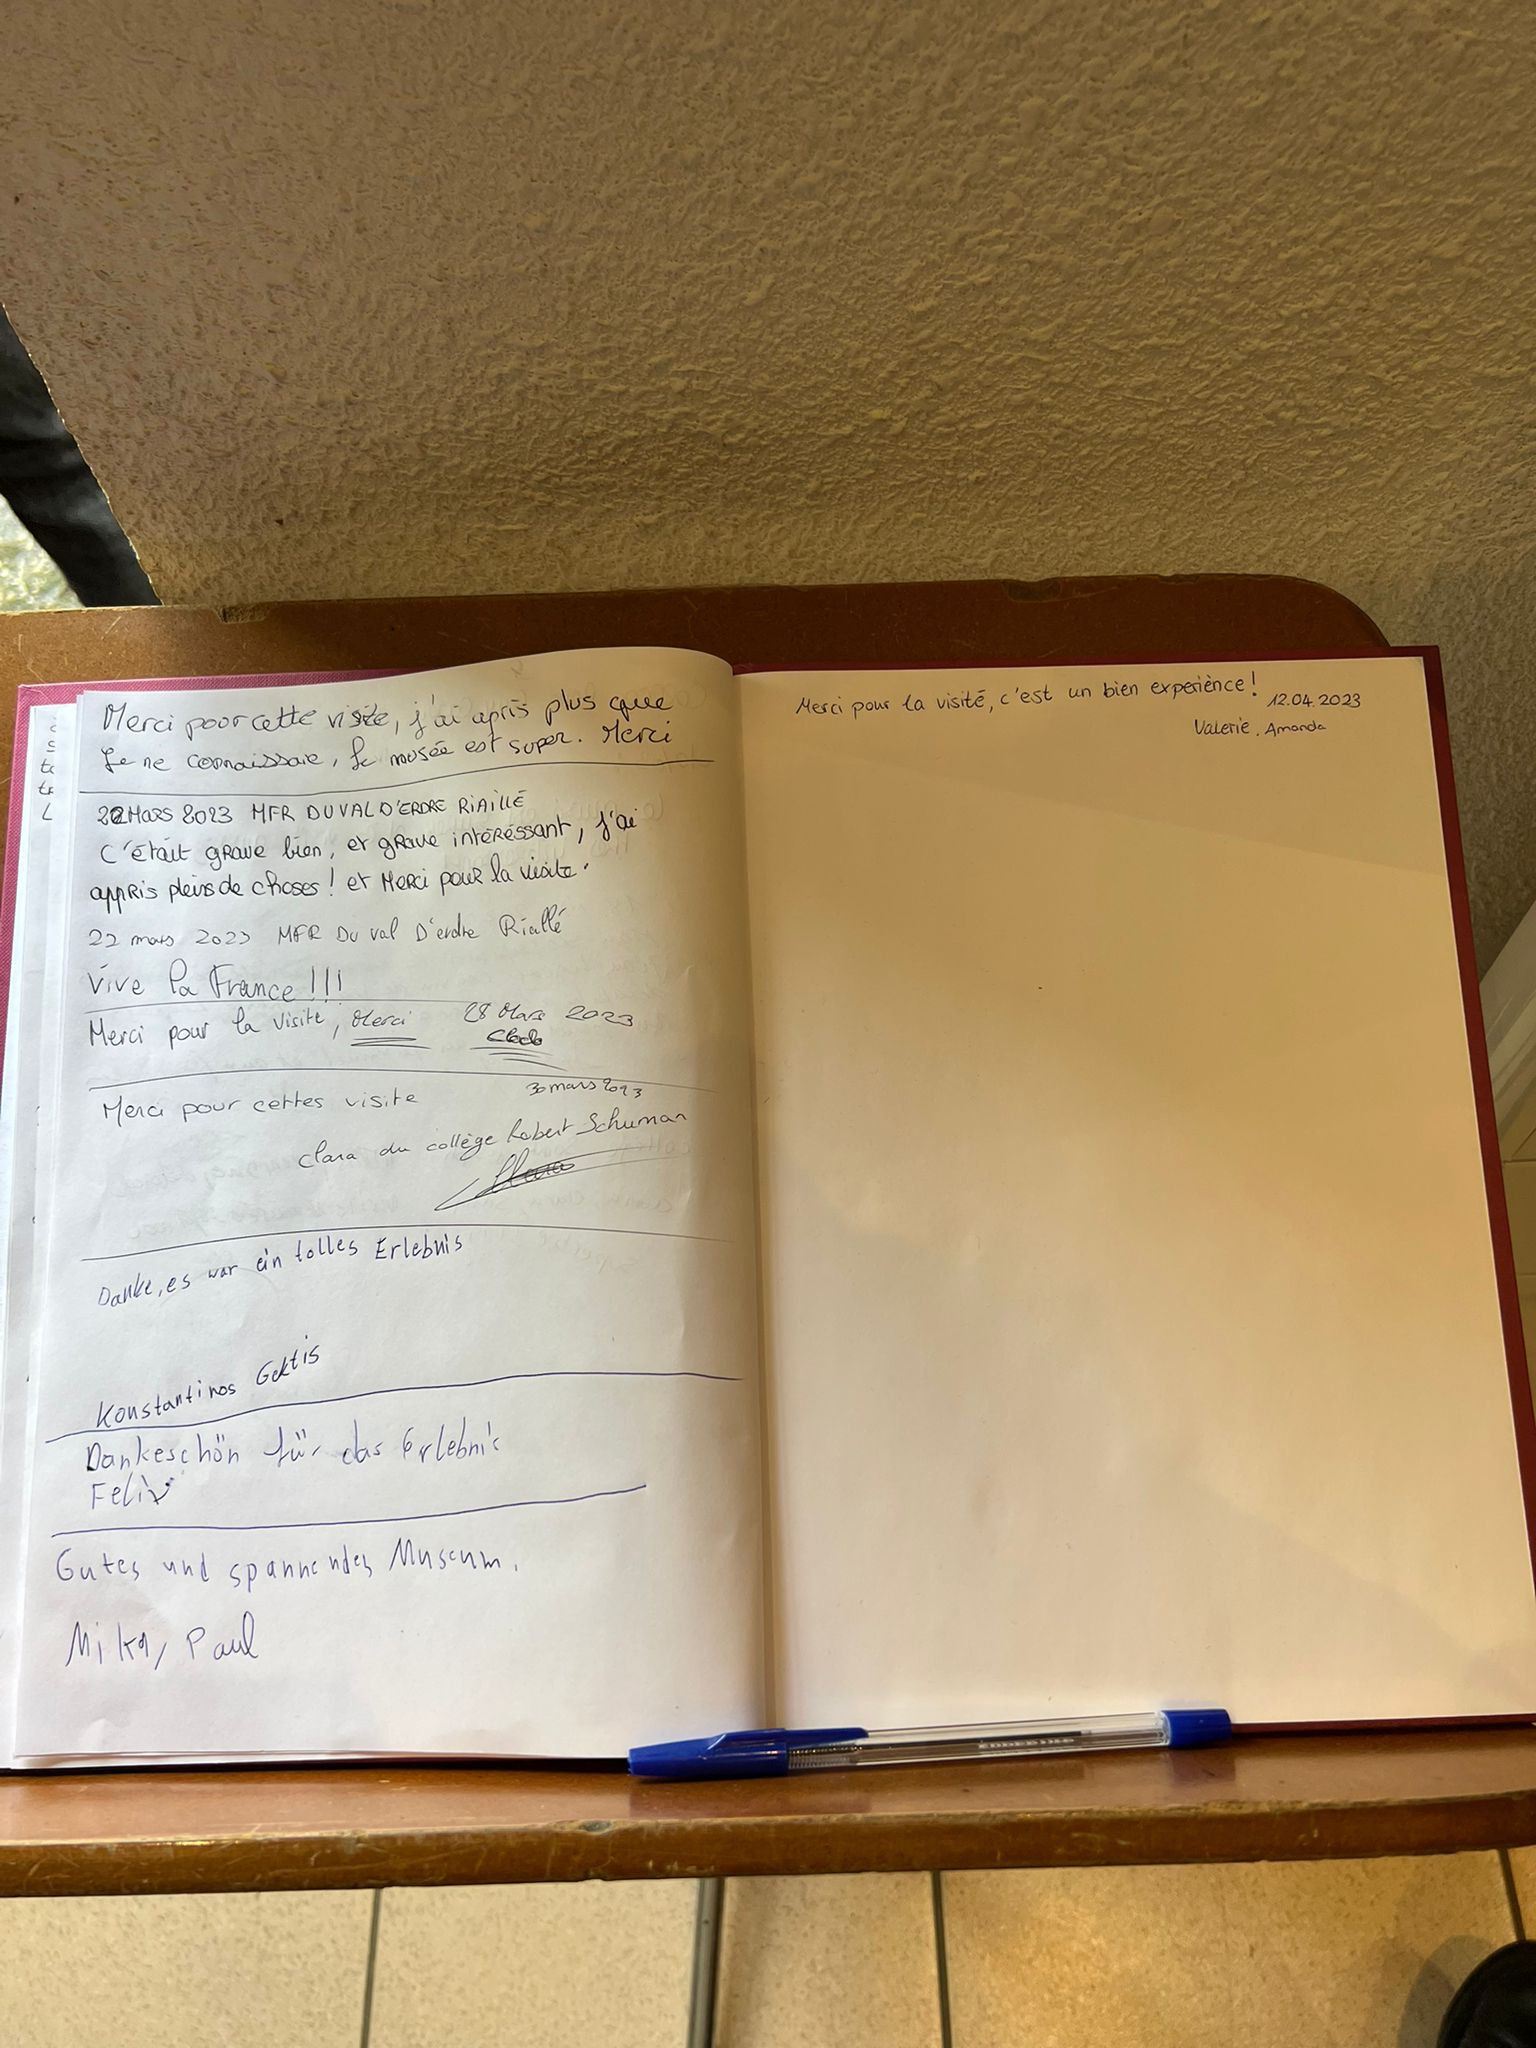 Merci pour cette visite, j'ai apris plus que
Je ne connaissaie, le musée est super. Merci
22 Mars 2023 MFR DU VAL D'ERDRE RIAILLÉ
C'était grave bien, et grave intéréssant, j'ai
appris pleins de choses! et Merci pour la visite.
22 mars 2023 MFR Du val D'erdre Riallé
Vive la France!!!
Merci pour la visite, Merci 28 Mars 2023
Merci pour cettes visite 30 mars 2023
Clara du collège Robert Schuman
Clara
Danke, es war ein tolles Erlebnis
Konstantinos
Dankeschön für das Erlebnis
Felix
Gutes und spannendes Museum.
Mika, Paul
Merci pour la visité, c'est un bien experiènce!
12.04.2023
Valerie, Amanda